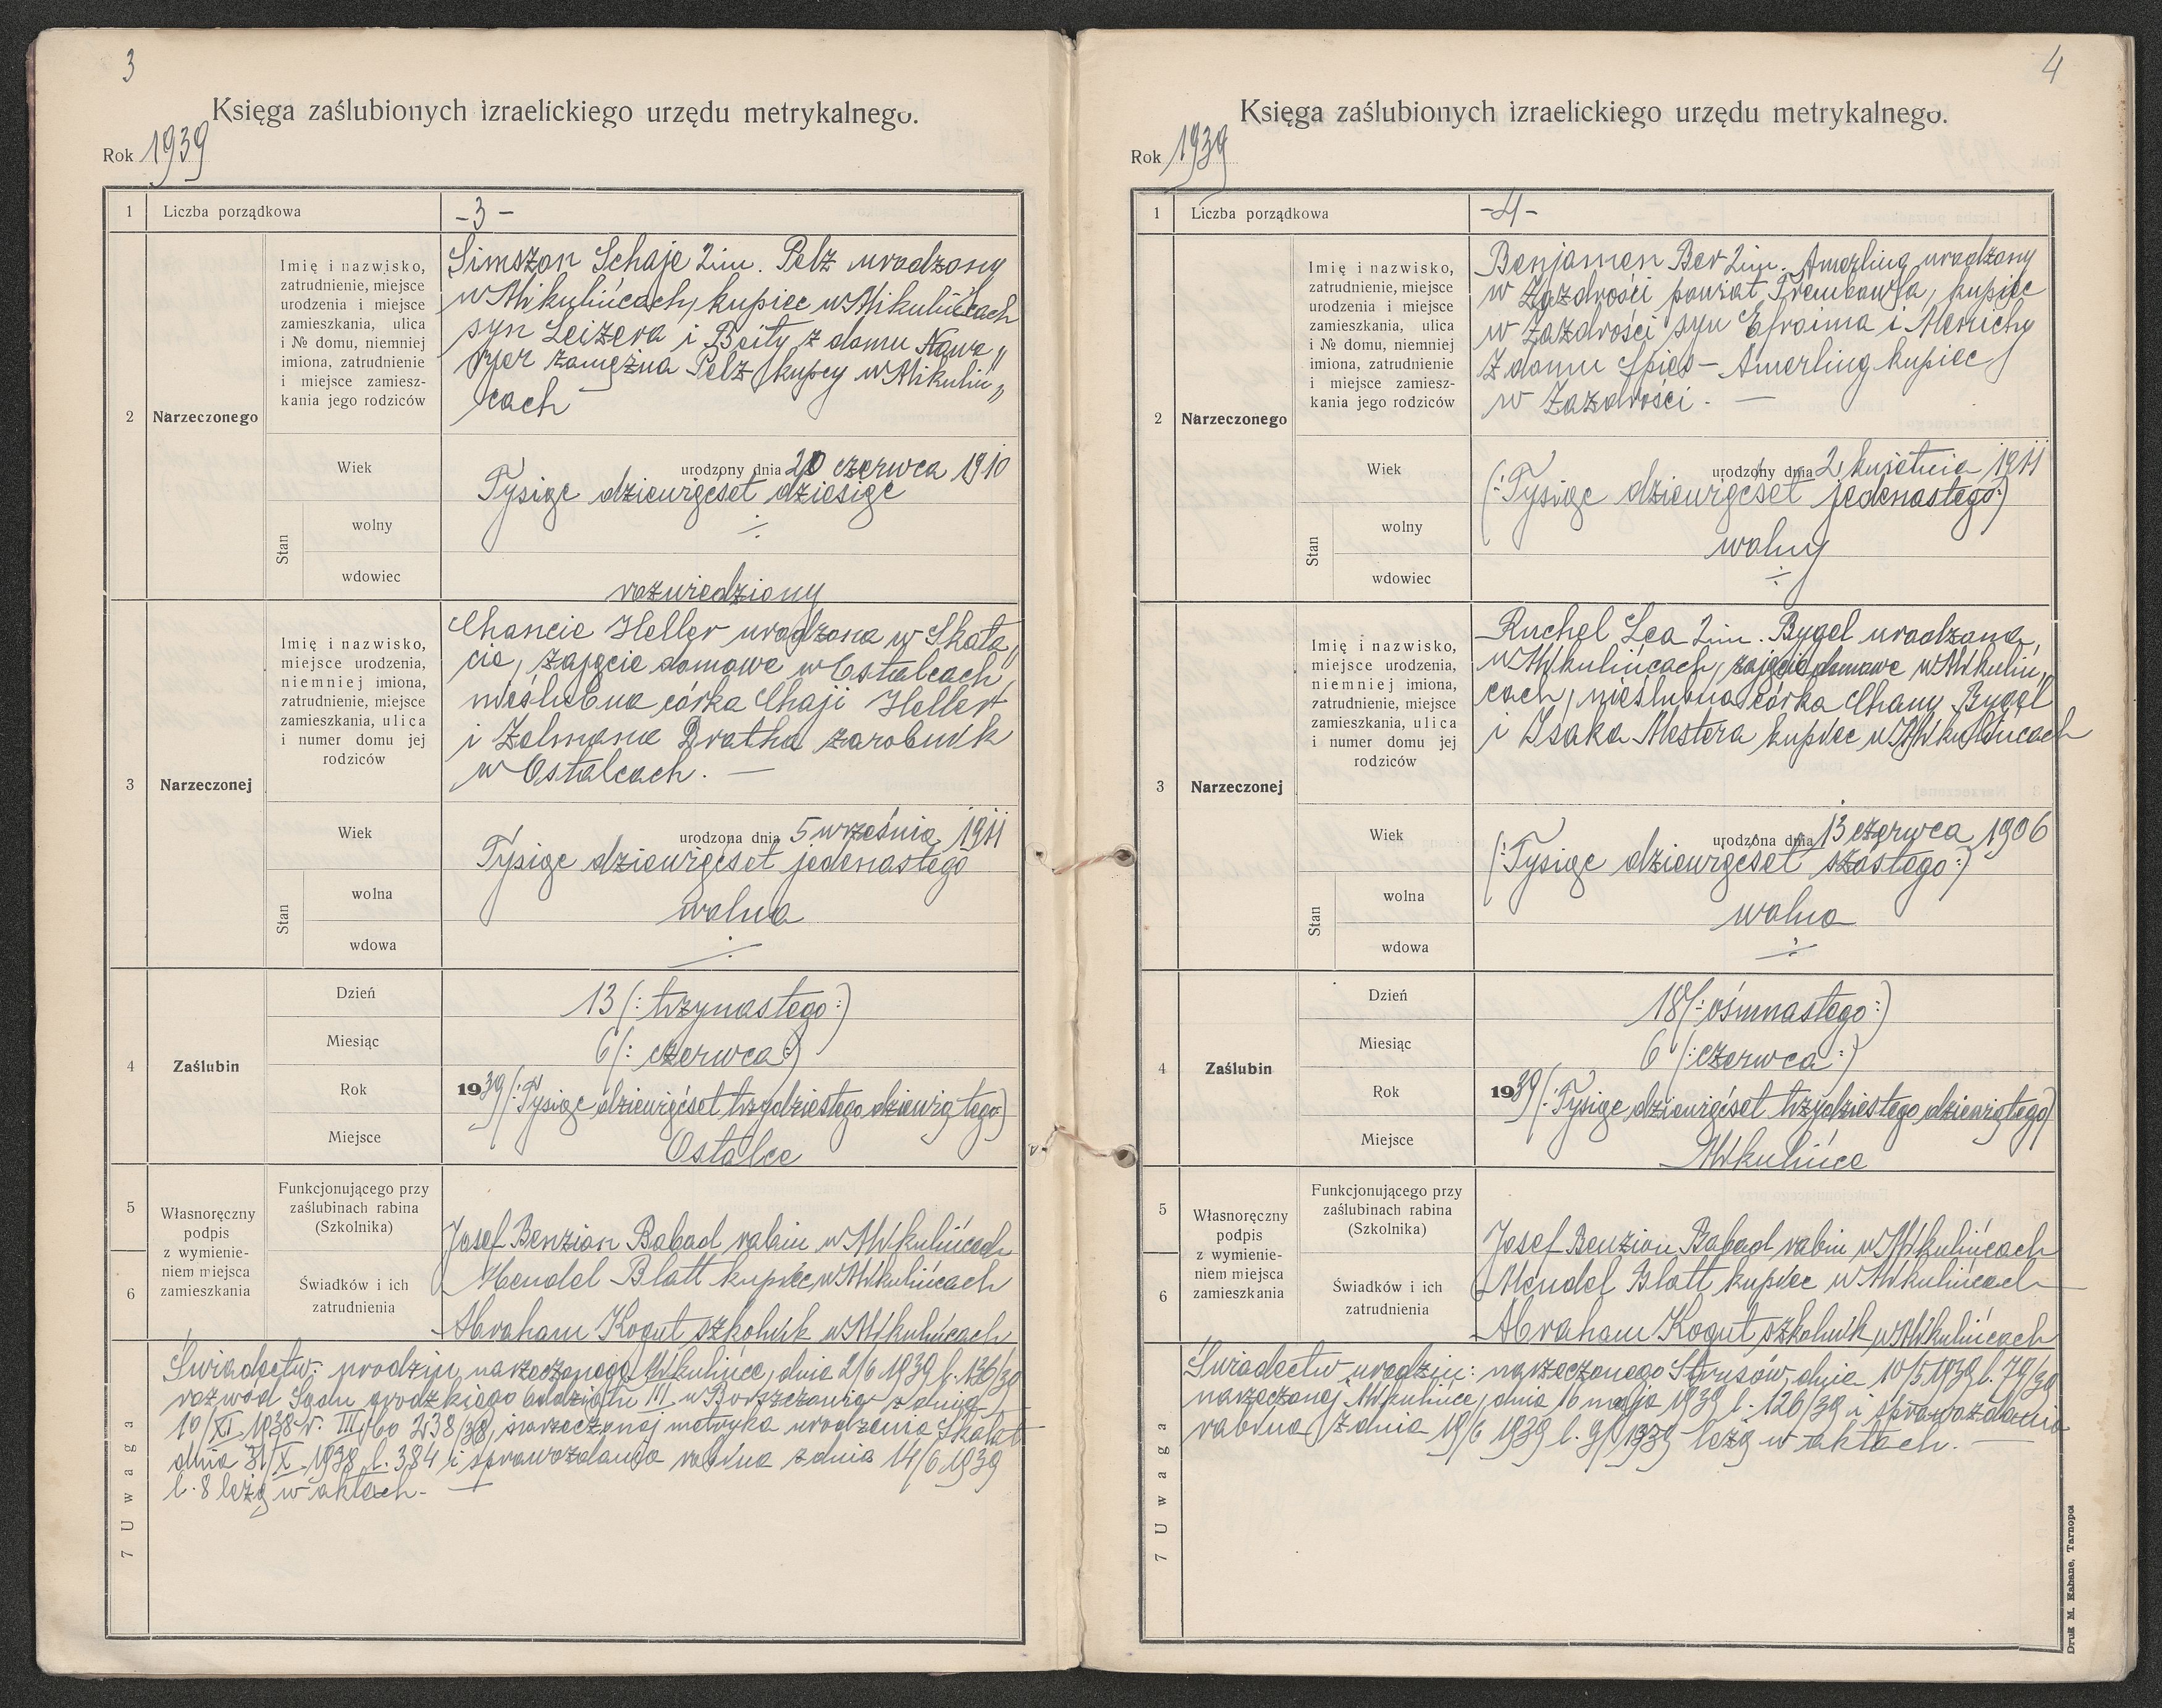 3
Księga zaślubionych izraelickiego urzędu metrykalnego.
Rok 1939
1 Liczba porządkowa -3-
2 Narzeczonego
Imię i nazwisko,
zatrudnienie, miejsce
urodzenia i miejsce
zamieszkania, ulica
i № domu, niemniej
imiona, zatrudnienie
i miejsce zamiesz-
kania jego rodziców
Simszon Schaje 2im. Pelz urodzony
w Mikulińcach, kupiec w Mikulińcach
syn Leizera i Beity z domu Nawa„
zamężna Pelz kupcy w Mikuliń„
cach
Wiek
urodzony dnia 20 czerwca 1910
Tysiąc dziewięćset dziesięć
Stan
wolny
÷
wdowiec
rozwiedziony
3 Narzeczonej
Imię i nazwisko,
miejsce urodzenia,
niemniej imiona,
zatrudnienie, miejsce
zamieszkania, ulica
i numer domu jej
rodziców
Chancie Heller urodzona w Skała„
cie, zajęcie domowe w Ostalcach
nieślubna córka Chaji Heller
i Zelmana Dratha zarobnik
w Ostalcach. —
Wiek
urodzona dnia 5 września 1911
Tysiąc dziewięćset jedenastego
Stan
wolna
wolna
wdowa
÷
4 Zaślubin
Dzień 13 (: trzynastego :)
Miesiąc 6 (: czerwca :)
Rok 1939 (: Tysiąc dziewięćset trzydziestego dziewiątego :)
Miejsce Ostalce
5
6
Własnoręczny
podpis
z wymienie-
niem miejsca
zamieszkania
Funkcjonującego przy
zaślubinach rabina
(Szkolnika)
Josef Benzion Babad rabin w Mikulińcach
Świadków i ich
zatrudnienia
Mendel Blatt kupiec w Mikulińcach
Abraham Kogut szkolnik w Mikulińcach
7 Uwaga
Świadectw: urodzin narzeczonego Mikulińce, dnia 2/6 1939 l. 136/39
rozwód Sądu grodzkiego oddziału III w Borszczowie z dnia
10/XI 1938 r. III 238/38, narzeczonej metryka urodzenia Skałat
dnia 31/X 1938 l. 384 i sprawozdania rabina z dnia 14/6 1939
l. 8 leżą w aktach. —
4
Księga zaślubionych izraelickiego urzędu metrykalnego.
Rok 1939
1 Liczba porządkowa -4-
2 Narzeczonego
Imię i nazwisko,
zatrudnienie, miejsce
urodzenia i miejsce
zamieszkania, ulica
i № domu, niemniej
imiona, zatrudnienie
i miejsce zamiesz-
kania jego rodziców
Benjamen Ber 2im. Amerling urodzony
w Zazdrości powiat Trembowla, kupiec
w Zazdrości syn Efroima i Menichy
z domu Spies – Amerling kupiec
w Zazdrości. —
Wiek
urodzony dnia 2 kwietnia 1911
(: Tysiąc dziewięćset jedenastego :)
Stan
wolny
wolny
wdowiec
÷
3 Narzeczonej
Imię i nazwisko,
miejsce urodzenia,
niemniej imiona,
zatrudnienie, miejsce
zamieszkania, ulica
i numer domu jej
rodziców
Ruchel Lea 2im. Bygel urodzona
w Mikulińcach, zajęcie domowe w Mikuliń„
cach, nieślubna córka Chany Bygel
i Isaka Mestera kupiec w Mikulińcach
Wiek
urodzona dnia 13 czerwca 1906
(: Tysiąc dziewięćset szóstego :)
Stan
wolna
wolna
wdowa
÷
4 Zaślubin
Dzień 18 (: ośmnastego :)
Miesiąc 6 (: czerwca :)
Rok 1939 (: Tysiąc dziewięćset trzydziestego dziewiątego)
Miejsce Mikulińce
5
6
Własnoręczny
podpis
z wymienie-
niem miejsca
zamieszkania
Funkcjonującego przy
zaślubinach rabina
(Szkolnika)
Josef Benzion Babad rabin w Mikulińcach
Świadków i ich
zatrudnienia
Mendel Blatt kupiec w Mikulińcach
Abraham Kogut szkolnik w Mikulińcach
7 Uwaga
Świadectw urodzin: narzeczonego Strusów, dnia 10/5 1939 l. 79/39
narzeczonej Mikulińce, dnia 16 maja 1939 l. 126/39 i sprawozdania
rabina z dnia 19/6 1939 l. 9/1939 leżą w aktach. —
Druk M. Kahane, Tarnopol